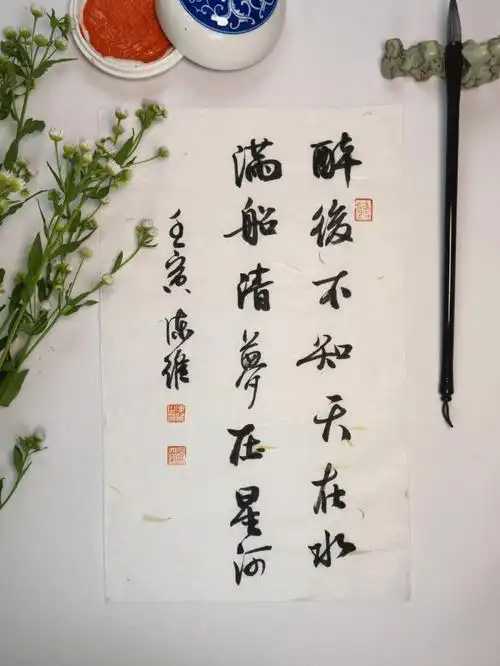 醉後不知天在水
满船清夢在星河
壬寅 陈維